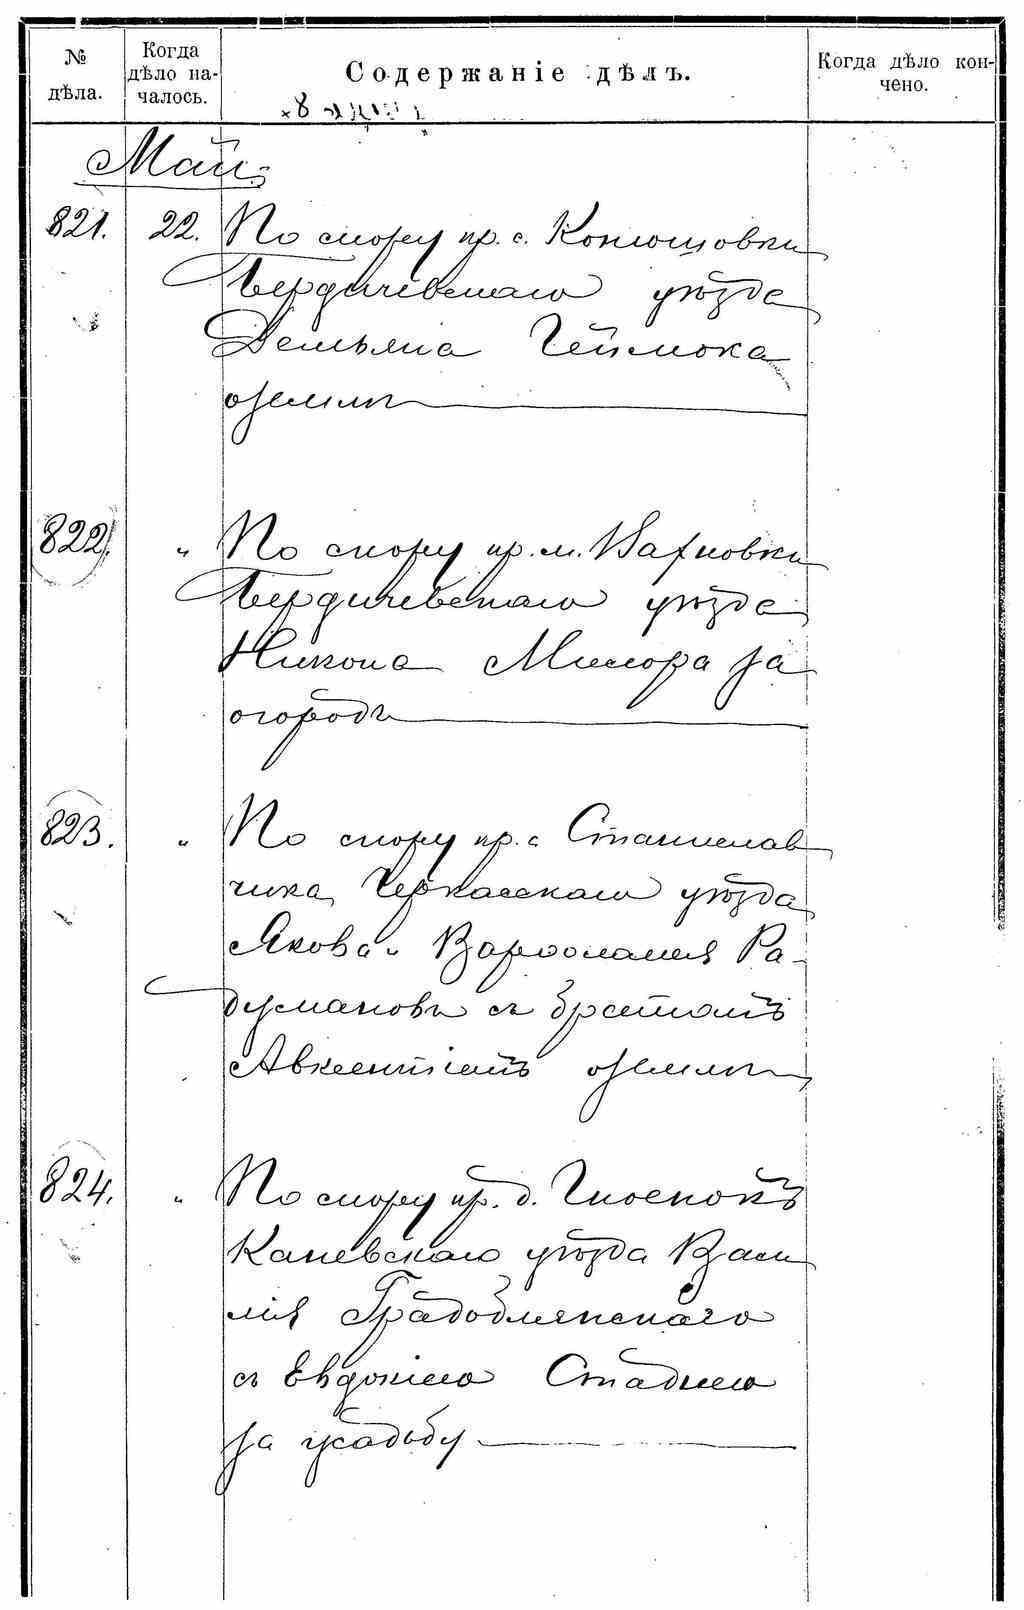 № дѣла.
Когда дѣло началось.
Содержаніе дѣлъ.
Когда дѣло кончено.
Май
821. 22. По спору кр. с. Конюшовки
Бердичевскаго уѣзда
Демьяна
о землѣ
822. „ По спору кр. м. Вахновки
Бердичевскаго уѣзда
Никона за
огородъ
823. „ По спору кр. с. Станислав
чика, Черкасскаго уѣзда
Якова и Варфоломея Ра-
думановъ съ братомъ
Авксентіемъ о землѣ
824. „ По спору кр. д.
Каневскаго уѣзда Васи
лія Градоблянскаго
съ Евдокіею Стаднею
за усадьбу